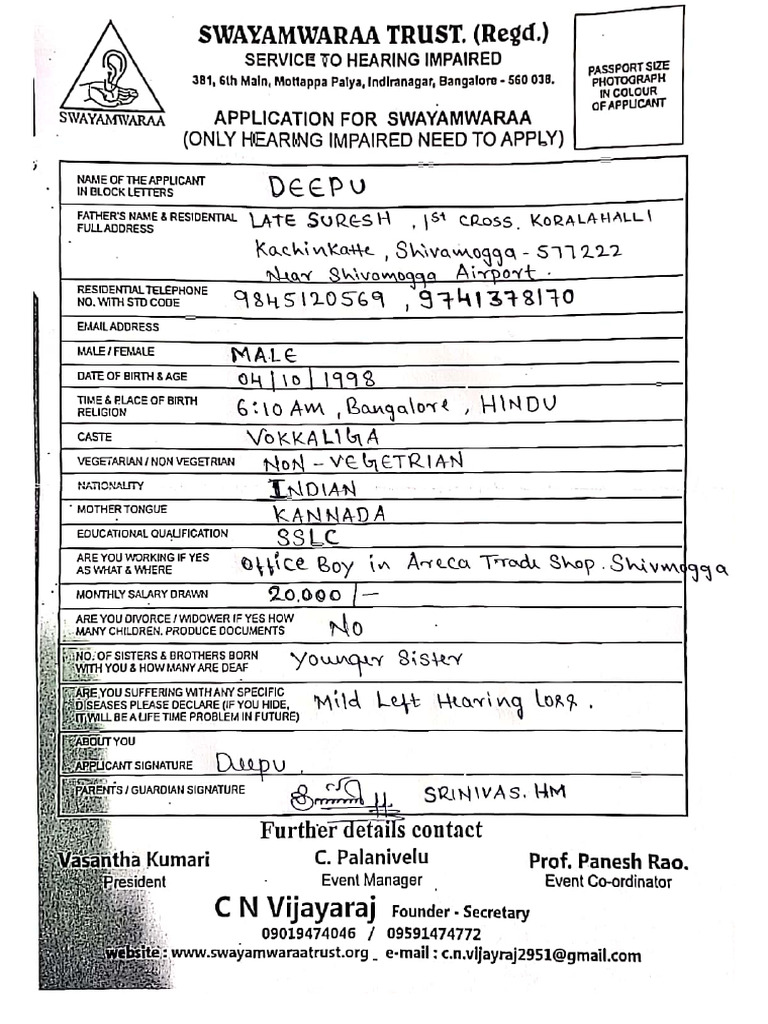 SWAYAMWARAA TRUST. (Regd.)
SERVICE TO HEARING IMPAIRED
381, 6th Main, Mottappa Palya, Indiranagar, Bangalore - 560 038.
SWAYAMWARAA
APPLICATION FOR SWAYAMWARAA
(ONLY HEARING IMPAIRED NEED TO APPLY)
PASSPORT SIZE
PHOTOGRAPH
IN COLOUR
OF APPLICANT
NAME OF THE APPLICANT
IN BLOCK LETTERS
DEEPU
FATHER'S NAME & RESIDENTIAL
FULL ADDRESS
LATE SURESH , 1st CROSS. KORALAHALLI
Kachinkatte, Shivamogga - 577222
Near Shivamogga Airport.
RESIDENTIAL TELEPHONE
NO. WITH STD CODE
9845120569 , 9741378170
EMAIL ADDRESS
MALE / FEMALE
MALE
DATE OF BIRTH & AGE
04/10/1998
TIME & PLACE OF BIRTH
RELIGION
6:10 Am, Bangalore, HINDU
CASTE
VOKKALIGA
VEGETARIAN / NON VEGETRIAN
NON - VEGETRIAN
NATIONALITY
INDIAN
MOTHER TONGUE
KANNADA
EDUCATIONAL QUALIFICATION
SSLC
ARE YOU WORKING IF YES
AS WHAT & WHERE
Office Boy in Areca Trade Shop. Shivmogga
MONTHLY SALARY DRAWN
20,000/-
ARE YOU DIVORCE / WIDOWER IF YES HOW
MANY CHILDREN. PRODUCE DOCUMENTS
NO
NO. OF SISTERS & BROTHERS BORN
WITH YOU & HOW MANY ARE DEAF
Younger Sister
ARE YOU SUFFERING WITH ANY SPECIFIC
DISEASES PLEASE DECLARE (IF YOU HIDE,
IT WILL BE A LIFE TIME PROBLEM IN FUTURE)
Mild Left Hearing loss.
ABOUT YOU
APPLICANT SIGNATURE
Deepu.
PARENTS / GUARDIAN SIGNATURE
SRINIVAS. HM
Further details contact
Vasantha Kumari
President
C. Palanivelu
Event Manager
Prof. Panesh Rao.
Event Co-ordinator
C N Vijayaraj Founder - Secretary
09019474046 / 09591474772
website : www.swayamwaraatrust.org e-mail : c.n.vijayraj2951@gmail.com